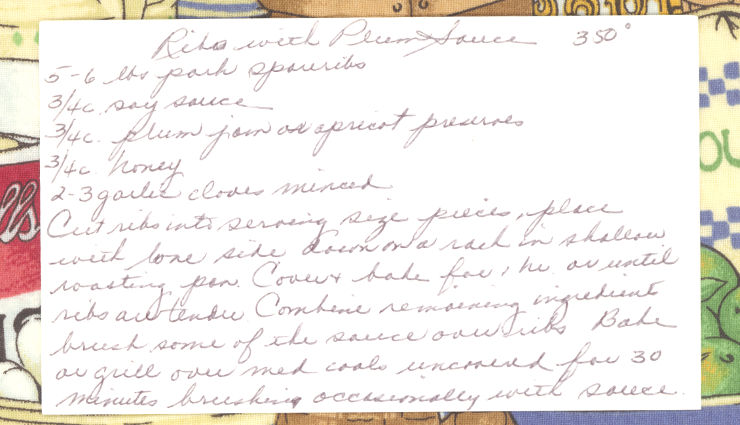 Ribs with Plum Sauce 350°
5-6 lbs pork spareribs
3/4 c. soy sauce
3/4 c. plum jam or apricot preserves
3/4 c. honey
2-3 garlic cloves minced
Cut ribs into serving size pieces, place
with bone side down on a rack in shallow
roasting pan. Cover & bake for 1 hr. or until
ribs are tender. Combine remaining ingredients
brush some of the sauce over ribs Bake
or grill over med coals uncovered for 30
minutes brushing occasionally with sauce.
lls
OU